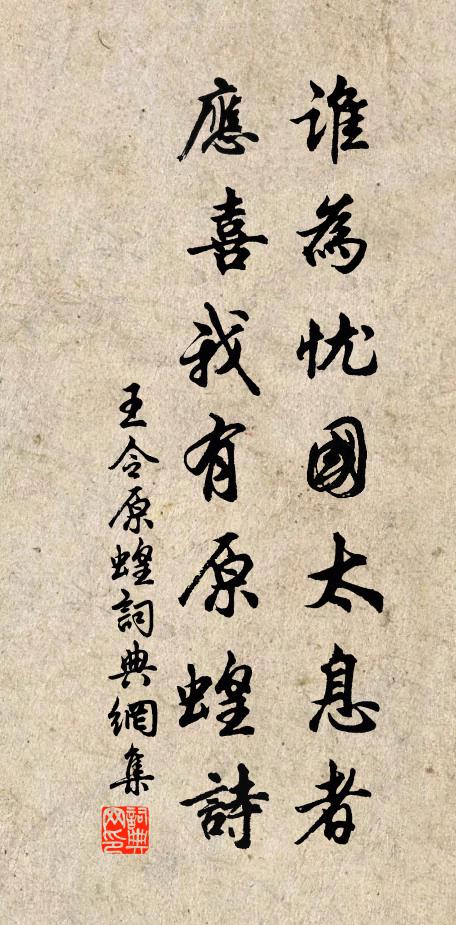 誰為忧國太息者
應喜我有原蝗詩
王令原蝗詞典網集
詞典網印